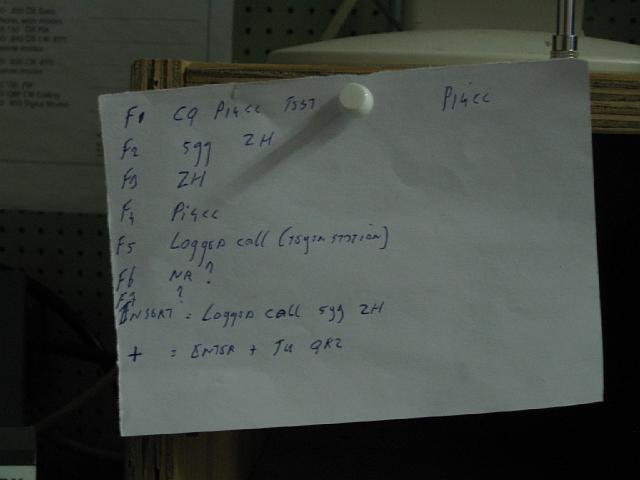 F1 CQ PI4CC TEST PI4CC
F2 5gg ZH
F3 ZH
F4 PI4CC
F5 LOGGER CALL (TEGEN STATION)
F6 NR ?
F7 ?
INSERT = LOGGER CALL 5gg ZH
+ = ENTER + TU QRZ